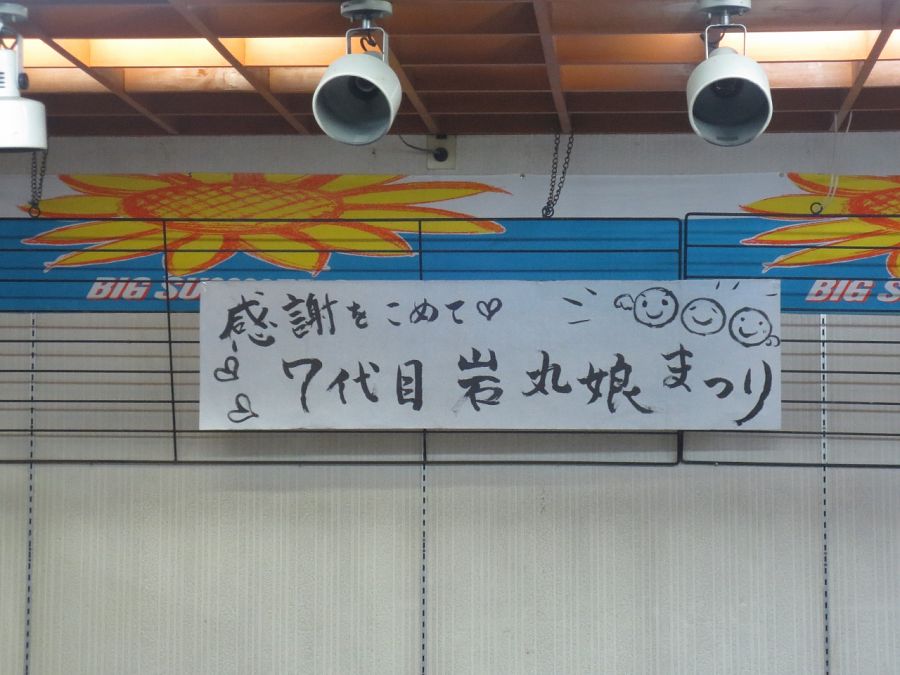 感謝をこめて♡
7代目岩丸娘まつり
BIG
BIG